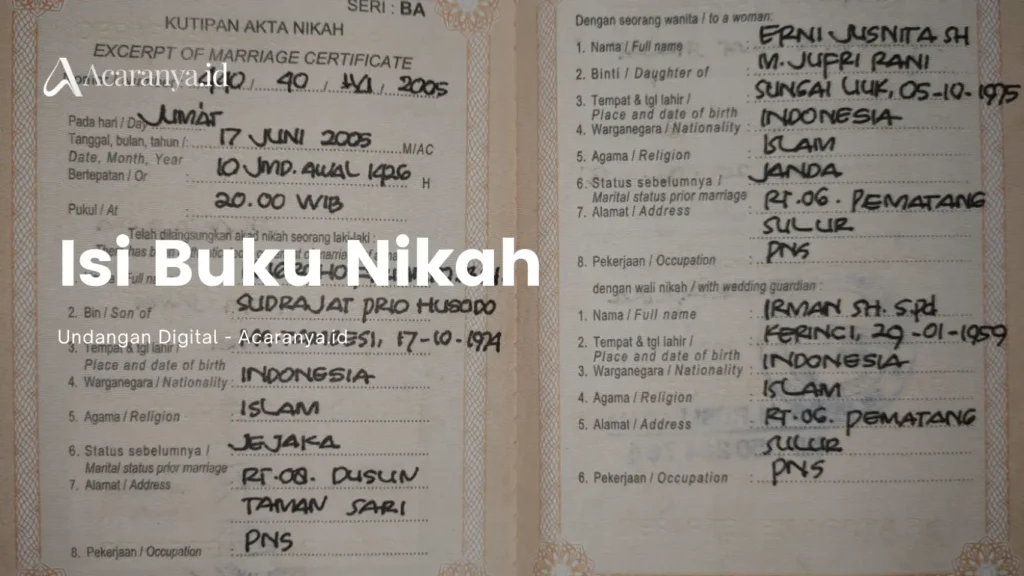 SERI : BA
KUTIPAN AKTA NIKAH
EXCERPT OF MARRIAGE CERTIFICATE
Acaranya.id
40 / / 2005
Pada hari / Day JUMAT
Tanggal, bulan, tahun / : 17 JUNI 2005 M/AC
Date, Month, Year
Bertepatan / Or : 10 JMD. AWAL 1426 H
Pukul / At : 20.00 WIB
Telah dilangsungkan akad nikah seorang laki-laki :
Isi Buku Nikah
Full name
2. Bin / Son of : SUDRAJAT PRIO HUSODO
Undangan Digital - Acaranya.id
3. Tempat & tgl lahir / 17-10-1974
Place and date of birth
4. Warganegara / Nationality : INDONESIA
5. Agama / Religion : ISLAM
6. Status sebelumnya / JEJAKA
Marital status prior marriage
7. Alamat / Address : RT.08. DUSUN
TAMAN SARI
8. Pekerjaan / Occupation : PNS
Dengan seorang wanita / to a woman:
1. Nama / Full name : ERNI JUSNITA SH
2. Binti / Daughter of : M. JUFRI RANI
3. Tempat & tgl lahir / : SUNGAI LIUK, 05-10-1975
Place and date of birth
4. Warganegara / Nationality : INDONESIA
5. Agama / Religion : ISLAM
6. Status sebelumnya / : JANDA
Marital status prior marriage
7. Alamat / Address : RT.06. PEMATANG
SULUR
8. Pekerjaan / Occupation : PNS
dengan wali nikah / with wedding guardian :
1. Nama / Full name : IRMAN SH. S.Pd
2. Tempat & tgl lahir / : KERINCI, 29-01-1959
Place and date of birth
3. Warganegara / Nationality : INDONESIA
4. Agama / Religion : ISLAM
5. Alamat / Address : RT.06. PEMATANG
SULUR
6. Pekerjaan / Occupation : PNS